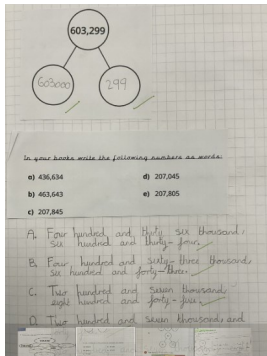 603,299
603000
299
In your books write the following numbers as words:
a) 436,634
d) 207,045
b) 463,643
e) 207,805
c) 207,845
A. Four hundred and thirty six thousand,
six hundred and thirty-four.
B. Four hundred and sixty-three thousand,
six hundred and forty-three.
C. Two hundred and seven thousand,
eight hundred and forty-five.
D. Two hundred and seven thousand and